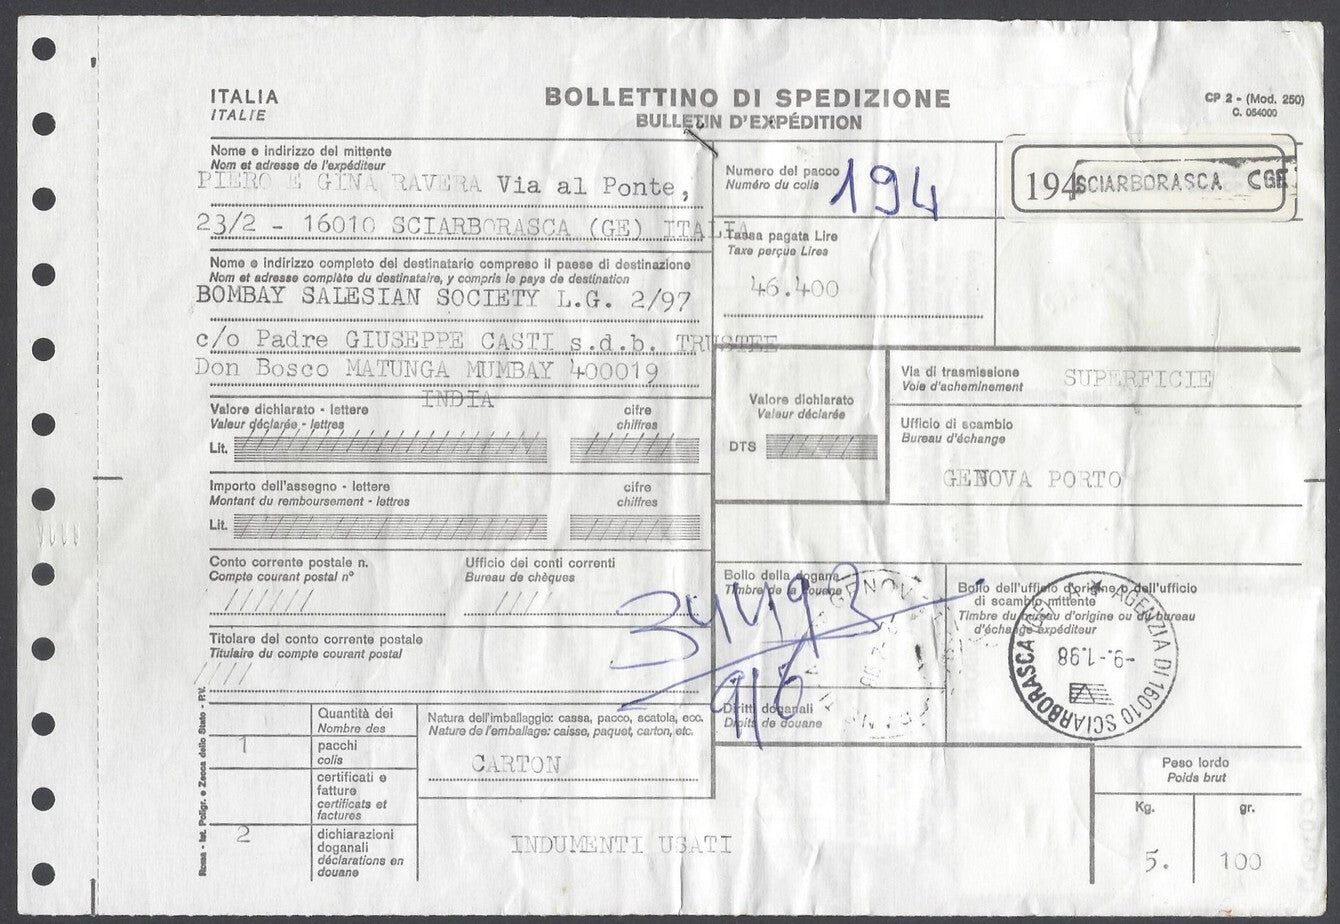 ITALIA
ITALIE
BOLLETTINO DI SPEDIZIONE
BULLETIN D'EXPÉDITION
CP 2 - (Mod. 250)
C. 054000
Nome e indirizzo del mittente
Nom et adresse de l'expéditeur
PIERO E GINA RAVERA Via al Ponte,
23/2 - 16010 SCIARBORASCA (GE) ITALIA
Numero del pacco
Numéro du colis
194
194 SCIARBORASCA CGE
Tassa pagata Lire
Taxe perçue Lires
46.400
Nome e indirizzo completo del destinatario compreso il paese di destinazione
Nom et adresse complète du destinataire, y compris le pays de destination
BOMBAY SALESIAN SOCIETY L.G. 2/97
c/o Padre GIUSEPPE CASTI s.d.b. TRUSTEE
Don Bosco MATUNGA MUMBAY 400019
INDIA
Valore dichiarato - lettere
Valeur déclarée - lettres
cifre
chiffres
Lit.
Valore dichiarato
Valeur déclarée
DTS
Via di trasmissione
Voie d'acheminement
SUPERFICIE
Ufficio di scambio
Bureau d'échange
GENOVA PORTO
Importo dell'assegno - lettere
Montant du remboursement - lettres
cifre
chiffres
Lit.
Conto corrente postale n.
Compte courant postal n°
Ufficio dei conti correnti
Bureau de chèques
Titolare del conto corrente postale
Titulaire du compte courant postal
Bollo della dogana
Timbre de la douane
GENOV
Bollo dell'ufficio d'origine o dell'ufficio
di scambio mittente
Timbre du bureau d'origine ou du bureau
d'échange expéditeur
AGENZIA DI 16010 SCIARBORASCA (GE)
-9.-1.98
Diritti doganali
Droits de douane
Quantità dei
Nombre des
1
pacchi
colis
certificati e
fatture
certificats et
factures
2
dichiarazioni
doganali
déclarations en
douane
Natura dell'imballaggio: cassa, pacco, scatola, ecc.
Nature de l'emballage: caisse, paquet, carton, etc.
CARTON
INDUMENTI USATI
Peso lordo
Poids brut
Kg.
gr.
5.
100
Roma - Ist. Poligr. e Zecca dello Stato - P.V.